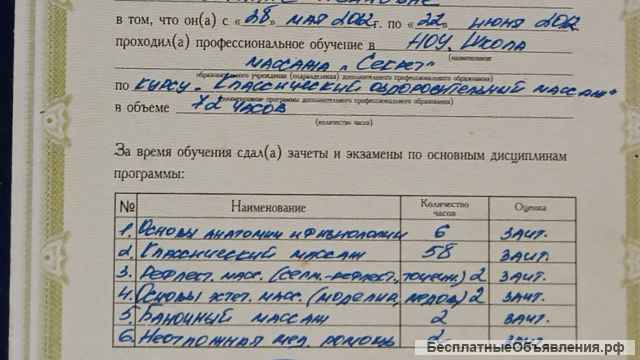 в том, что он(а) с «28» мая 2012 г. по «22» июня 2012
проходил(а) профессиональное обучение в НОУ „Школа
(наименование
массажа „Секрет"
образовательного учреждения (подразделения) дополнительного профессионального образования)
по курсу „Классический оздоровительный массаж"
(наименование программы дополнительного профессионального образования)
в объеме 72 часов
(количество часов)
За время обучения сдал(а) зачеты и экзамены по основным дисциплинам
программы:
№ Наименование Количество часов Оценка
1. Основы анатомии и физиологии 6 зачт.
2. Классический массаж 58 зачт.
3. Рефлект. масс. (сегм.-рефлект., точечн.) 2 зачт.
4. Основы эстет. масс. (моделир., медов.) 2 зачт.
5 Баночный массаж 2 зачт.
6. Неотложная мед. помощь 2 зачт
БесплатныеОбъявления.рф